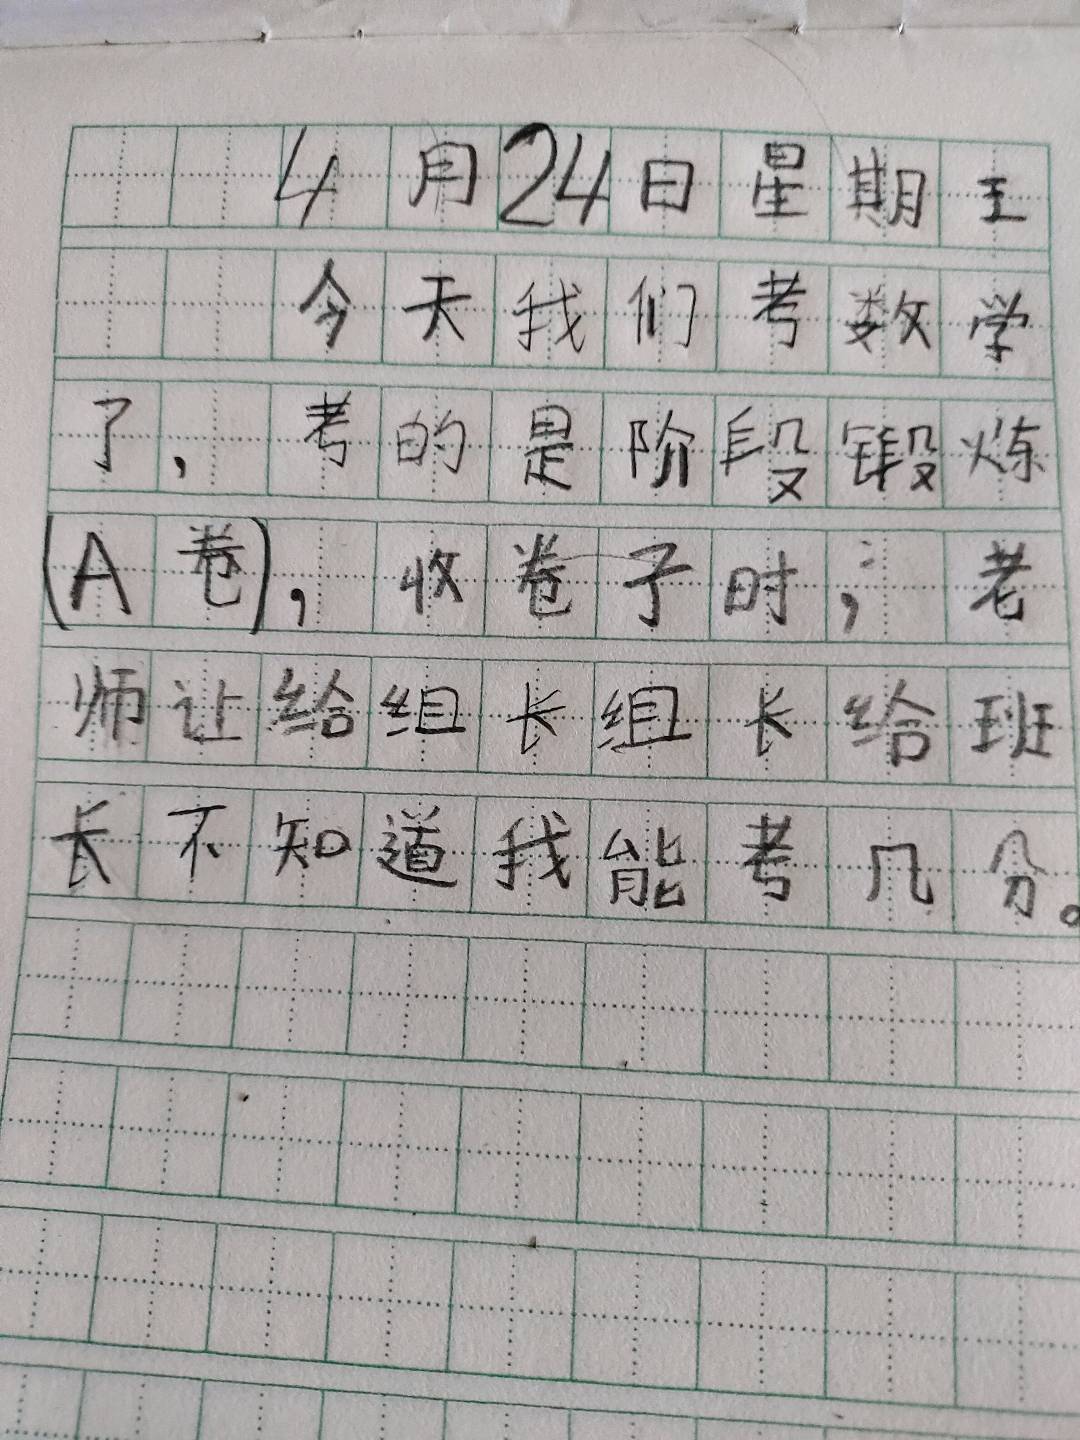 4月24日星期五
今天我们考数学
了，考的是阶段锻炼
(A卷)，收卷子时，老
师让给组长组长给班
长不知道我能考几分。